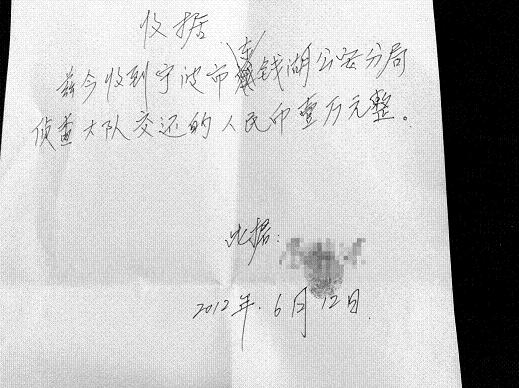 收据
兹今收到宁波市东钱湖公安分局
侦查大队交还的人民币壹万元整。
此据:
2012年.6月12日.